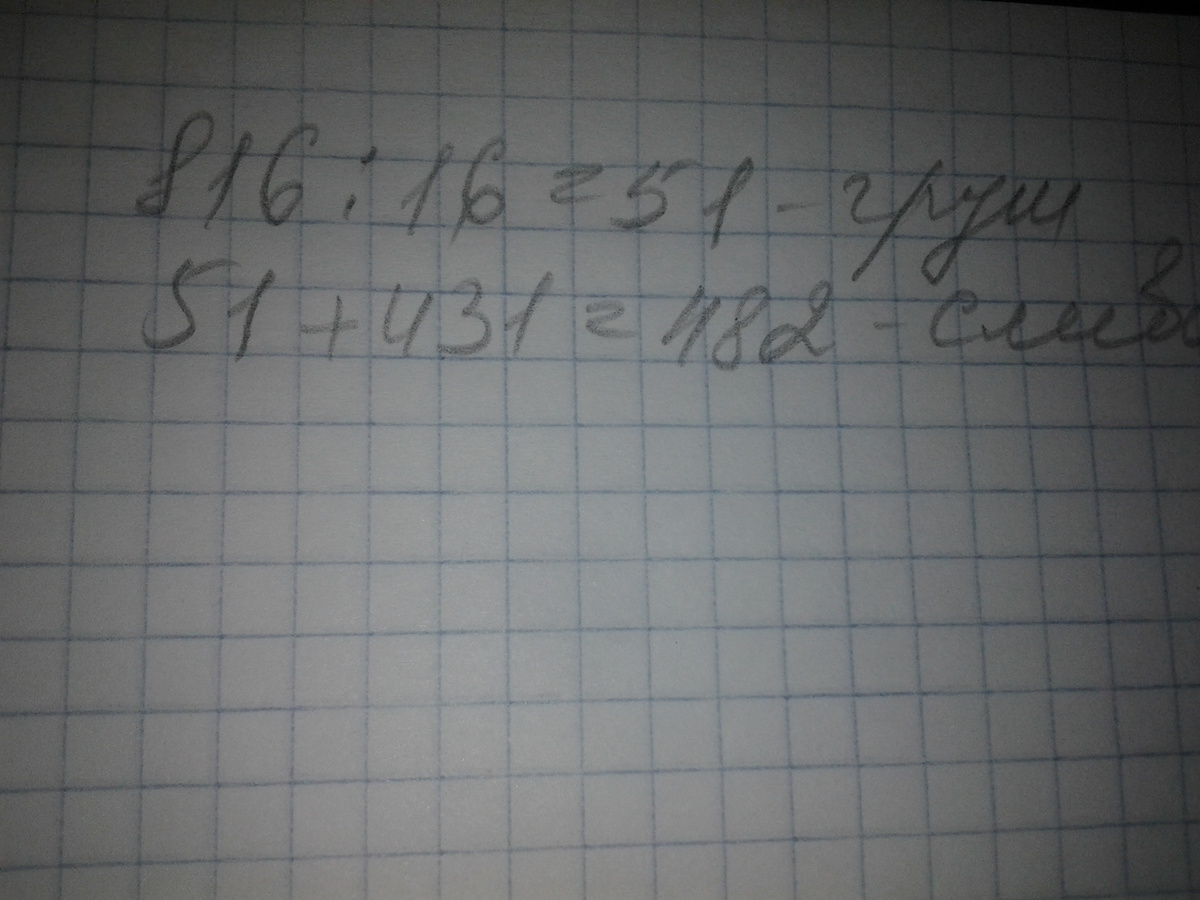 816 : 16 = 51 - груш
51 + 431 = 482 - слив